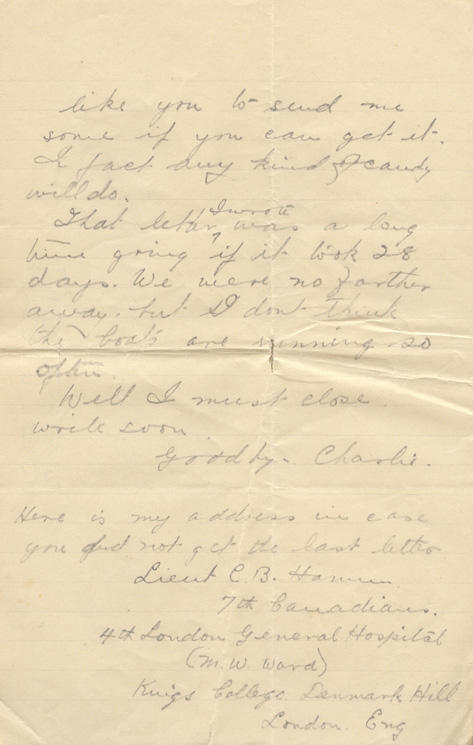 like you to send me
some if you can get it.
In fact any kind of candy
will do.
That letter I wrote was a long
time going if it took 28
days. We were no farther
away. but I don't think
the boats are running so
often.
Well I must close.
write soon.
Goodby. Charlie.
Here is my address in case
you did not get the last letter
Lieut C. B.
7th Canadians.
4th London General Hospital
(M. W. Ward)
Kings College. Denmark Hill
London. Eng